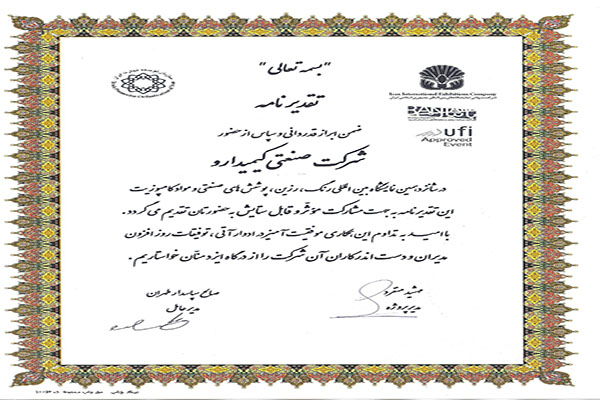 "بسمه تعالی"
تقدیرنامه
Iran International Exhibitions Company
ufi
Approved
Event
ضمن ابراز قدردانی و سپاس از حضور
شرکت صنعتی کیمیدارو
در شانزدهمین نمایشگاه بین المللی رنگ، رزین، پوشش های صنعتی و مواد کامپوزیت
این تقدیرنامه به جهت مشارکت مؤثر و قابل ستایش به حضورتان تقدیم می گردد.
با امید به تداوم این همکاری موفقیت آمیز در ادوار آتی، توفیقات روزافزون
مدیران و دست اندرکاران آن شرکت را از درگاه ایزدمنان خواستاریم.
جمشید
مدیر پروژه
صالح پاسدار طهران
مدیرعامل